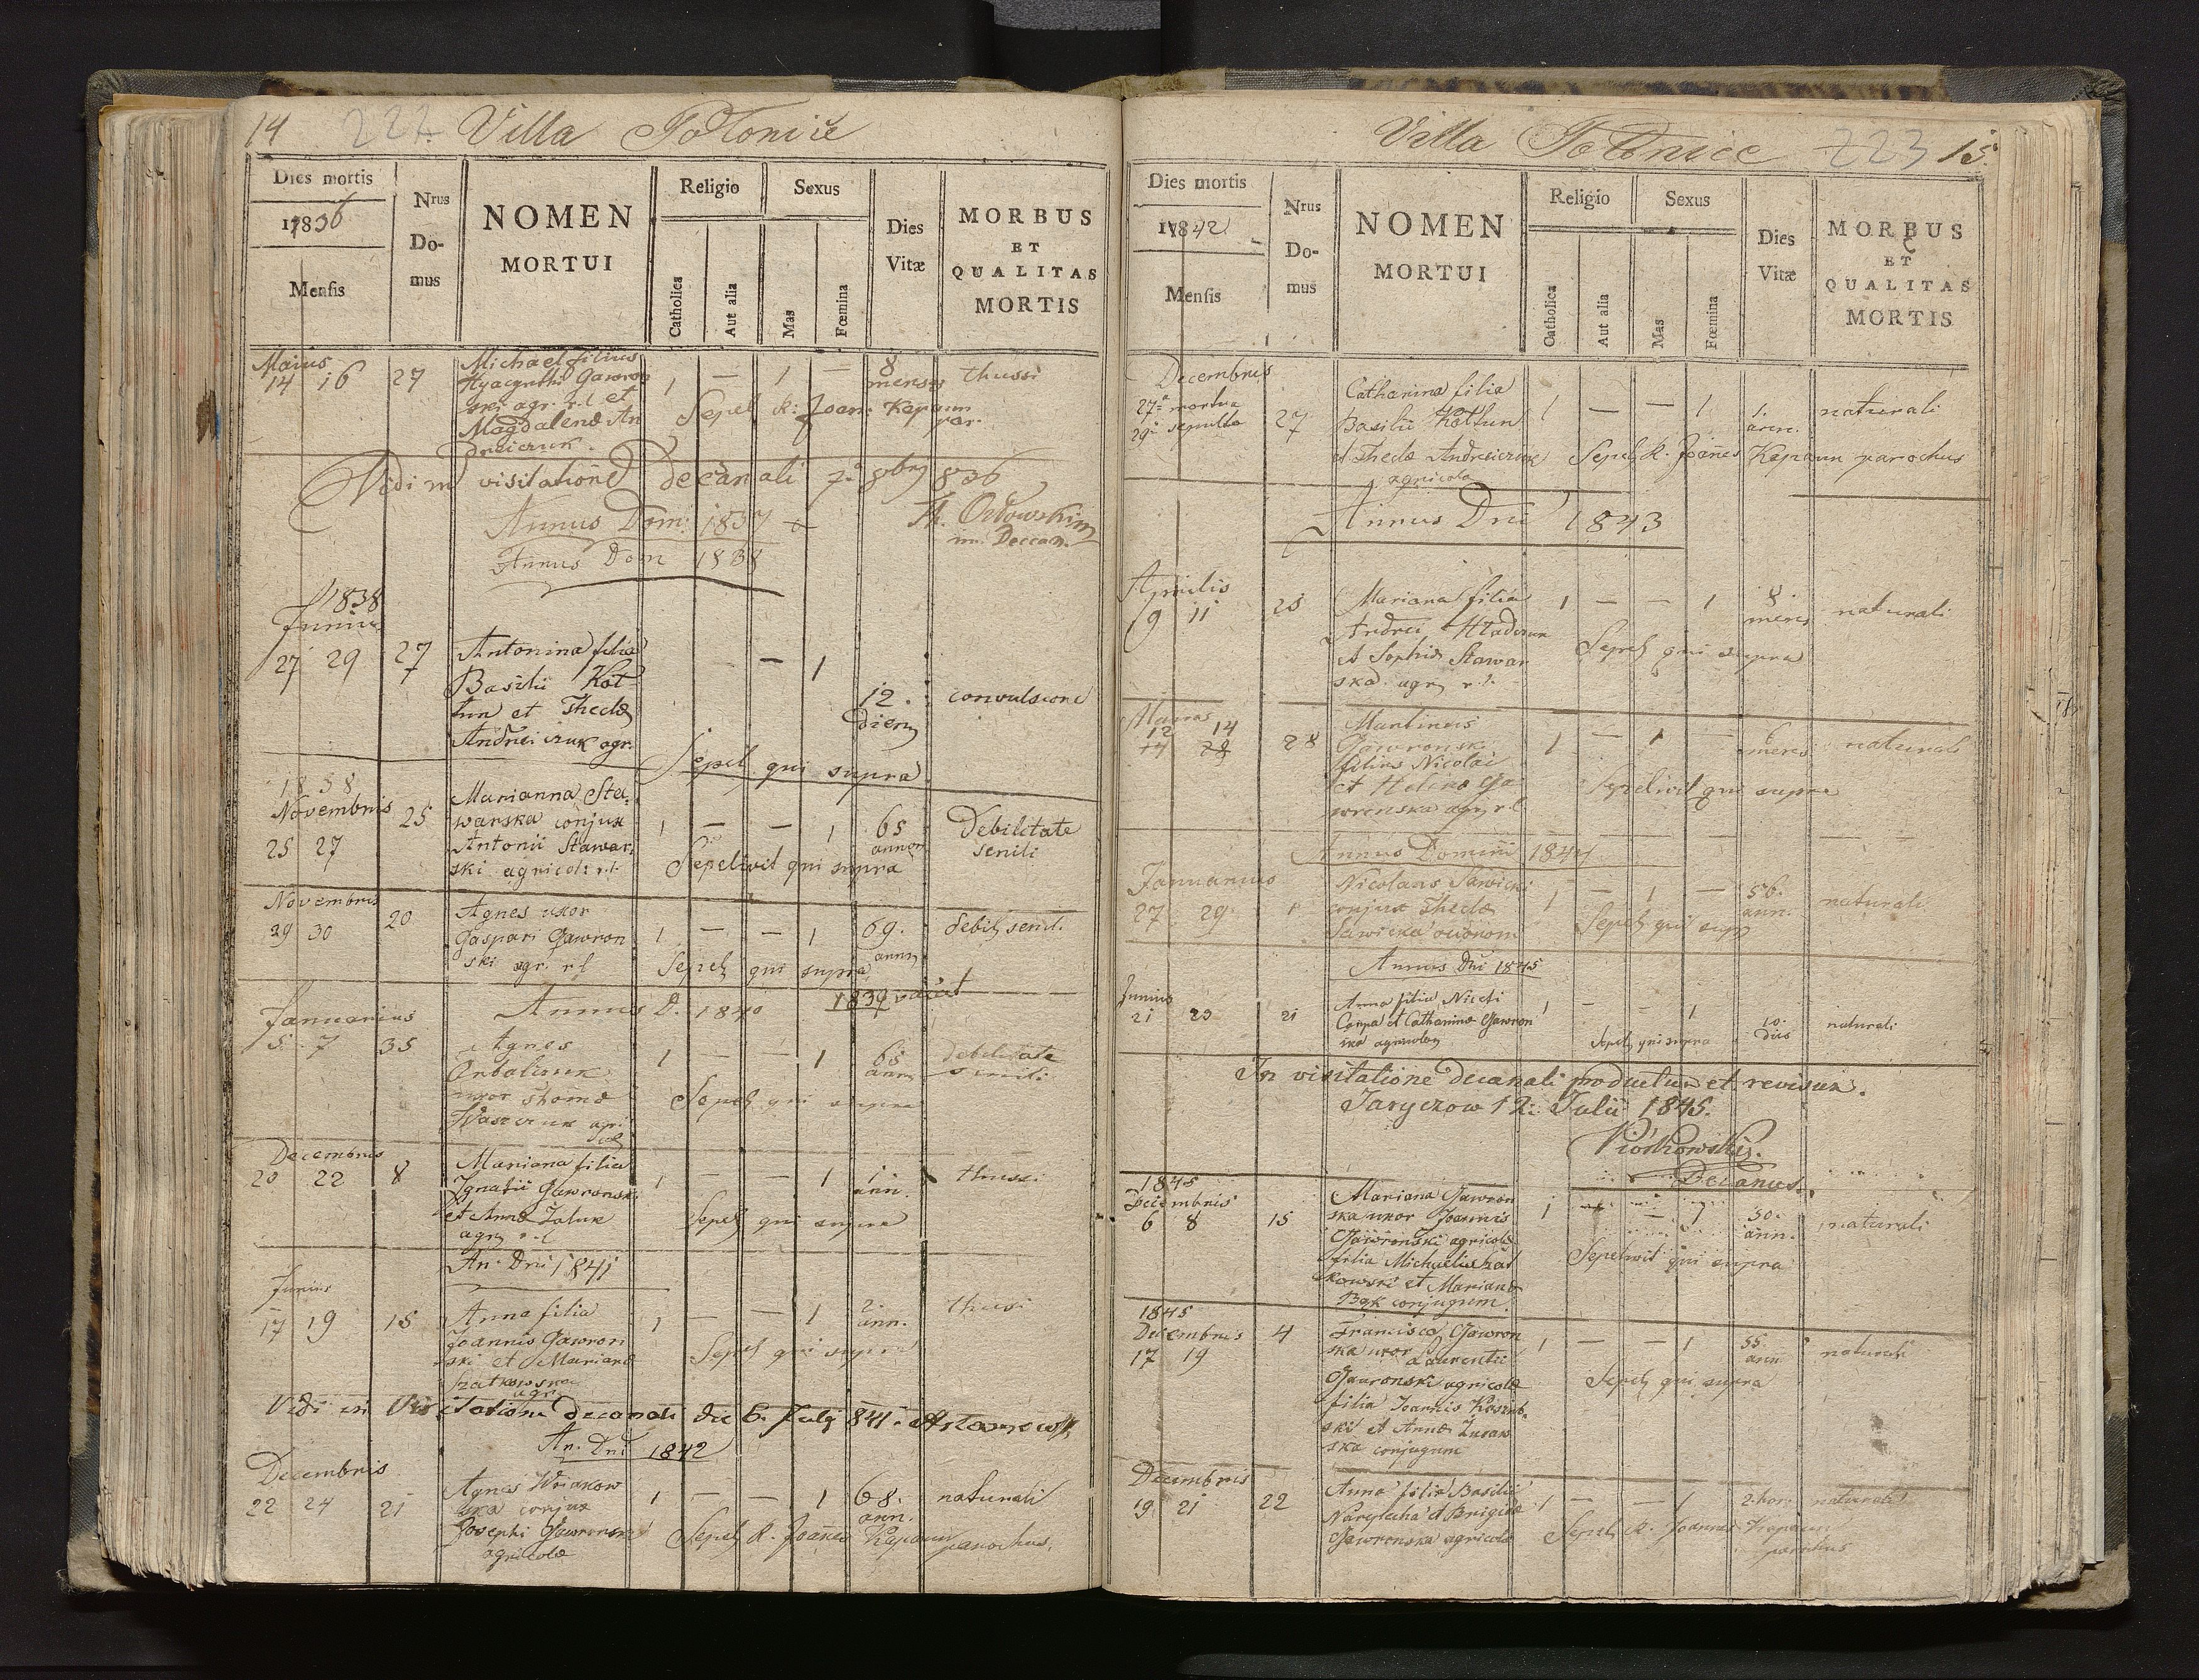 14 222. Villa Połonice
Dies mortis
1836
Mensis
Nrus
Do-
mus
NOMEN
MORTUI
Religio
Catholica
Aut alia
Sexus
Mas
Fœmina
Dies
Vitæ
MORBUS
ET
QUALITAS
MORTIS
Maius
14 16 27 Michael filius 1 — 1 — 8 thussi
Hyacynthi Gawron mensis
ski agr. r.l et
Magdalena An Sepel R: Joan: Kapaun par.
dreiczuk.
Vidi in visitatione decanali 7a 8bris 836
Annus Dom: 1837
Annus Dom 1838
1838
Junius
27 29 27 Antonina filia — 1
Basilii Kot 12. convulsione
tun et Thecla dierum
Andreiczuk agr.
Sepel. qui supra
1838
Novembris 25 Marianna Sta-
25 27 warska conjux 1 — — 1 65 Debilitate
Antonii Stawar annor senili
ski agricol: r.l. Sepelivit qui supra
Novembris
29 30 20 Agnes uxor
Gaspari Gawron 1 — — 1 69. debil senil.
ski agr. r.l Sepel qui supra ann
Annus D. 1840 1839 vacat
Januarius
5. 7 35 Agnes 1 — — 1 65 debilitate
ann senili
uxor Thoma Sepel qui supra
Decembris
20 22 8 Mariana filia 1 — 1 1 thussi
Ignatii Gawronski ann.
et Anna Zaluk Sepel qui supra
agr r.l
An: Dni 1841
Junius
17 19 15 Anna filia 1 — — 1 2. thusi
Joannis Gawron ann.
ski et Mariana Sepel qui supra
Szatkowska
agr
Vidi in Visitatione decanali die 6. Julij 841.
An. Dni 1842
Decembris
22 24 21 Agnes 1 — — 1 68. naturali
ska conjux ann.
Josephi Gawronski Sepel R. Joannes Kapaun parochus.
agricola
Villa Połonice 223 15.
Dies mortis
1842
Mensis
Nrus
Do-
mus
NOMEN
MORTUI
Religio
Catholica
Aut alia
Sexus
Mas
Fœmina
Dies
Vitæ
MORBUS
ET
QUALITAS
MORTIS
Decembris
27a mortua 27 Catharina filia 1 — — 1 1. naturali
29a sepulta Basilii Kottun ann.
et Thecla Andreiczuk Sepel R. Joannes Kapaun parochus
agricola
Annus Dni 1843
Aprilis
9 11 25 Mariana filia 1 — — 1 8. naturali
Andrei Hladczuk mens
et Sophia Stawar Sepel qui supra
ska agr r.l.
Maius
12 14 28 Martinus
Gawronski 1 — 1 — mens naturali
filius Nicolai
et Helena Ga Sepelivit qui supra
wronska agr r.l.
Annus Domini 1844
Januarius
27 29. Nicolaus Sawicki 1 — 1 — 56. naturali
conjux Thecla ann.
Sawicka Sepel qui sup
Annus Dni 1845
Junius
21 23 21 Anna filia Niceti 1 — — 1 10. naturali
et Catharina Gawron dies
ska agricolar Sepel qui supra
In visitatione decanali productum et revisum.
Jaryczow 12: Julii 1845.
Piotrowski.
Decanus.
1845
Decembris
6 8 15 Mariana Gawron 1 — — 1 30. naturali
ska uxor Joannis ann.
Gawronski agricola
filia Michaelis Szat Sepelivit qui supra
kowski et Mariana
Bąk conjugum.
1845
Decembris 4 Francisca Gawron 1 — — 1 55. naturali
17 19 ska uxor Laurentii ann
Gawronski agricola Sepel qui supra
filia Joannis
ski et Anna Zuraw
ska conjugum
Decembris
19. 21 22 Anna filia Basilii 1 — — 1 2 hor. naturali
et Brigida
Gawronska agricola Sepel R. Joannes Kapaun
parochus